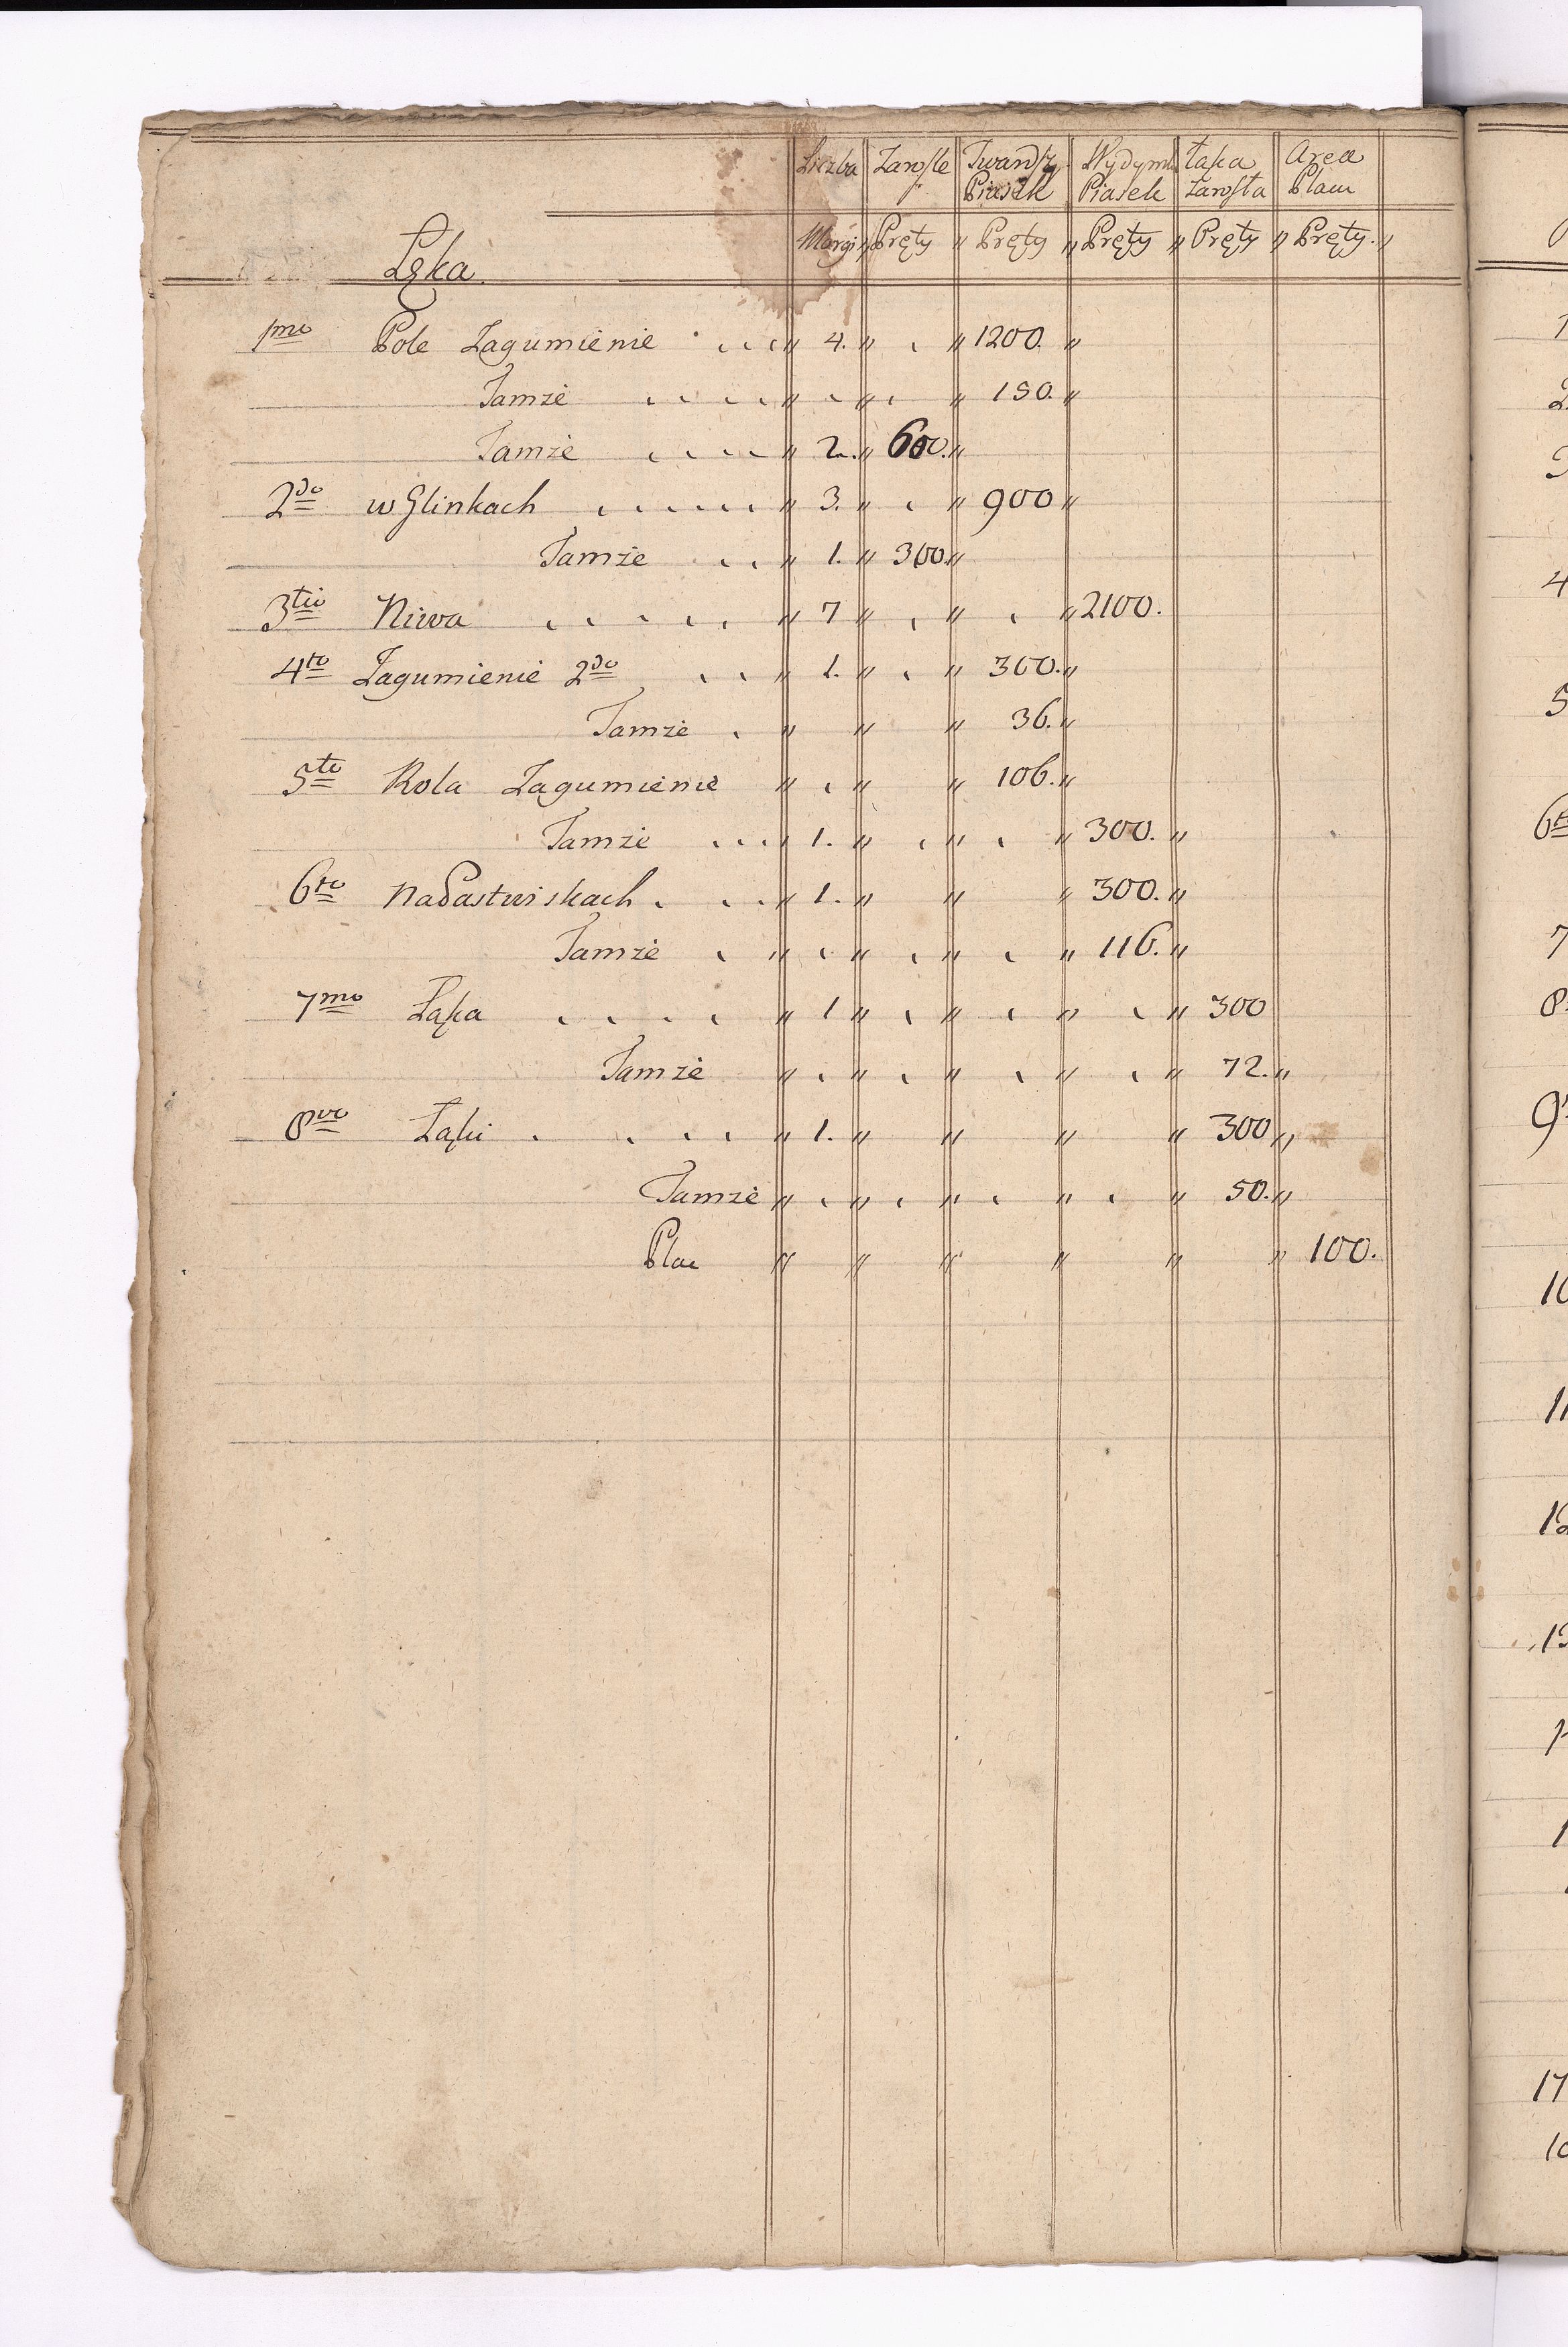 Liczba Zarosle Twardy Wydym. Łąka Area
Piasek Piasek Zarosła Placu
Morgi Pręty Pręty Pręty Pręty Pręty.
Łęka.
1mo Pole Zagumienie 4. 1200.
Tamże 150.
Tamże 2. 600.
2do w Glinkach 3. 900
Tamże 1. 300
3tio Niwa 7 2100.
4to Zagumienie 2do 1. 300.
Tamże 36.
5to Rola Zagumienie 106.
Tamże 1. 300.
6to na Pastwiskach 1. 300.
Tamże 116.
7mo Łąka 1 300
Tamże 72.
8vo Łąki 1. 300
Tamże 50.
Plac 100.